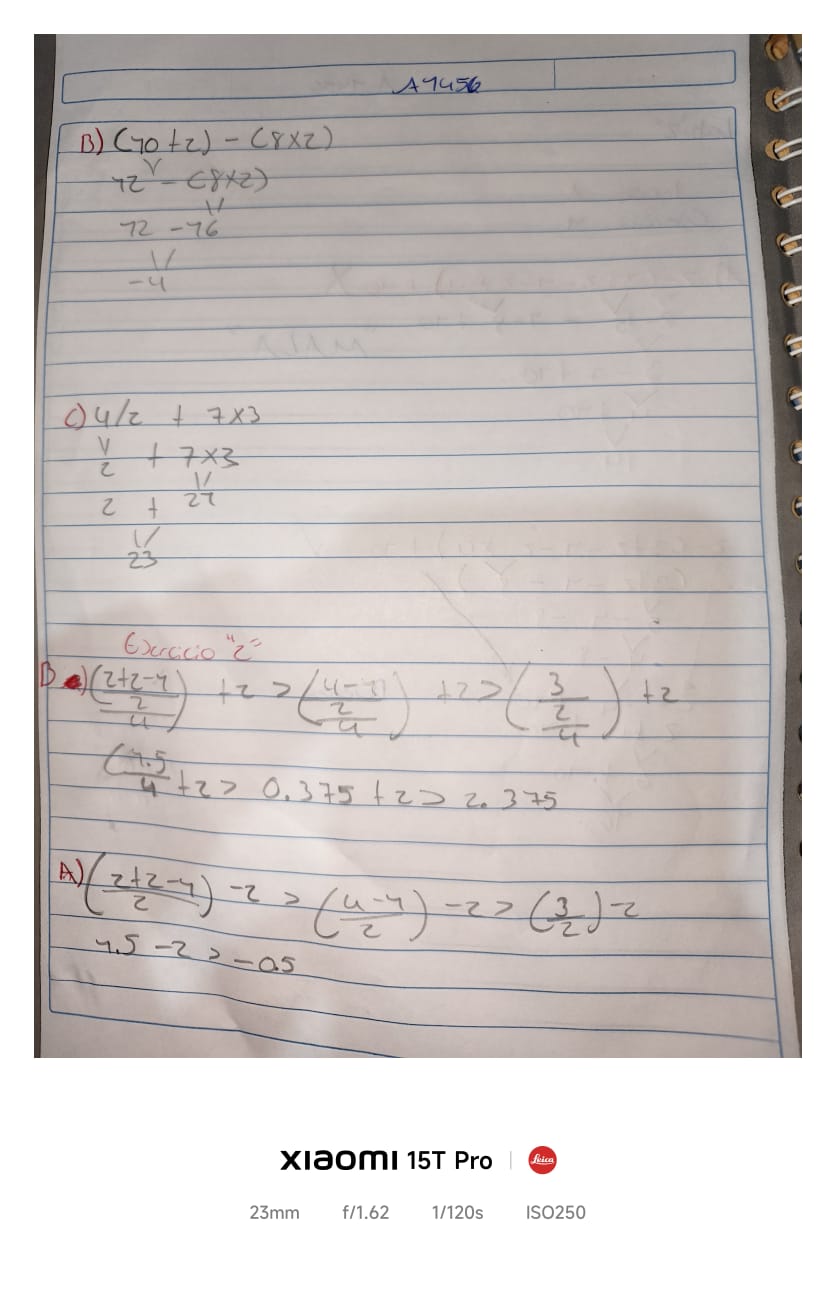 A1456
B) (10 + 2) - (8x2)
12 - (8x2)
12 - 16
-4
C) 4/2 + 7x3
2 + 7x3
2 + 21
23
Ejercicio "2"
B a) ((2+2-1)/2/4) +2 > ((4-1)/2/4) +2 > (3/2/4) +2
(1.5/4 +2 > 0.375 +2 > 2.375
A) ((2+2-1)/2) -2 > ((4-1)/2) -2 > (3/2) -2
1.5 -2 > -0.5
XIAOMI 15T Pro | Leica
23mm f/1.62 1/120s ISO250